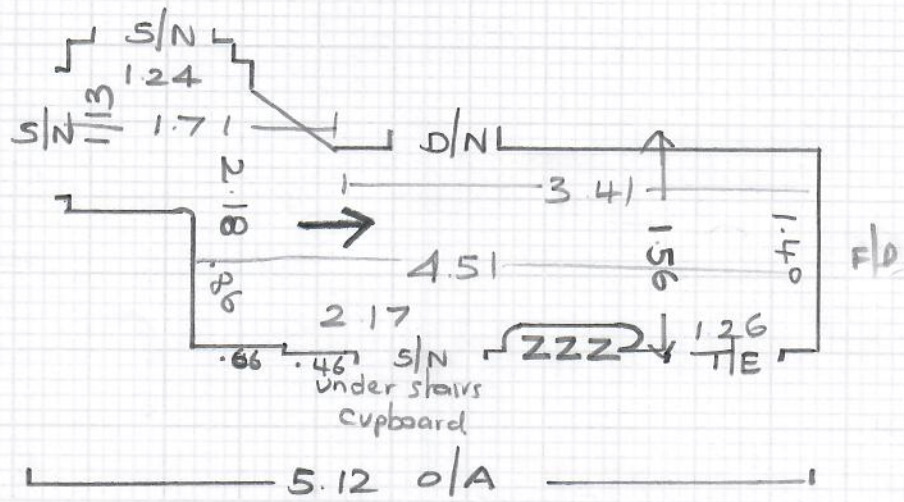 S/N
1.24
S/N 1.13 1.71
D/N
3.41
2.18
1.40
F/D
1.56
4.51
.86
2.17
1.26
.66 .46 S/N ZZZ T/E
under stairs
cupboard
5.12 O/A